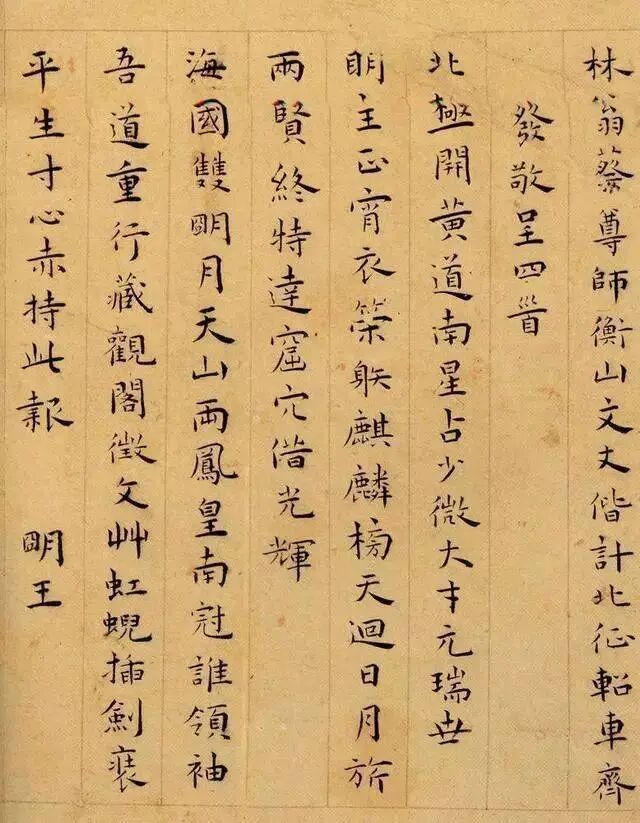 林翁蔡尊師衡山文丈偕計北征軺車齊
發敬呈四首
北極開黃道南星占少微大才元瑞世
明主正宵衣策䠶麒麟榜天迴日月旂
兩賢終特達窟穴借光輝
海國雙明月天山兩鳳皇南冠誰領袖
吾道重行藏觀閣徵文艸虹蜺插劍裝
平生寸心赤持此報 明王